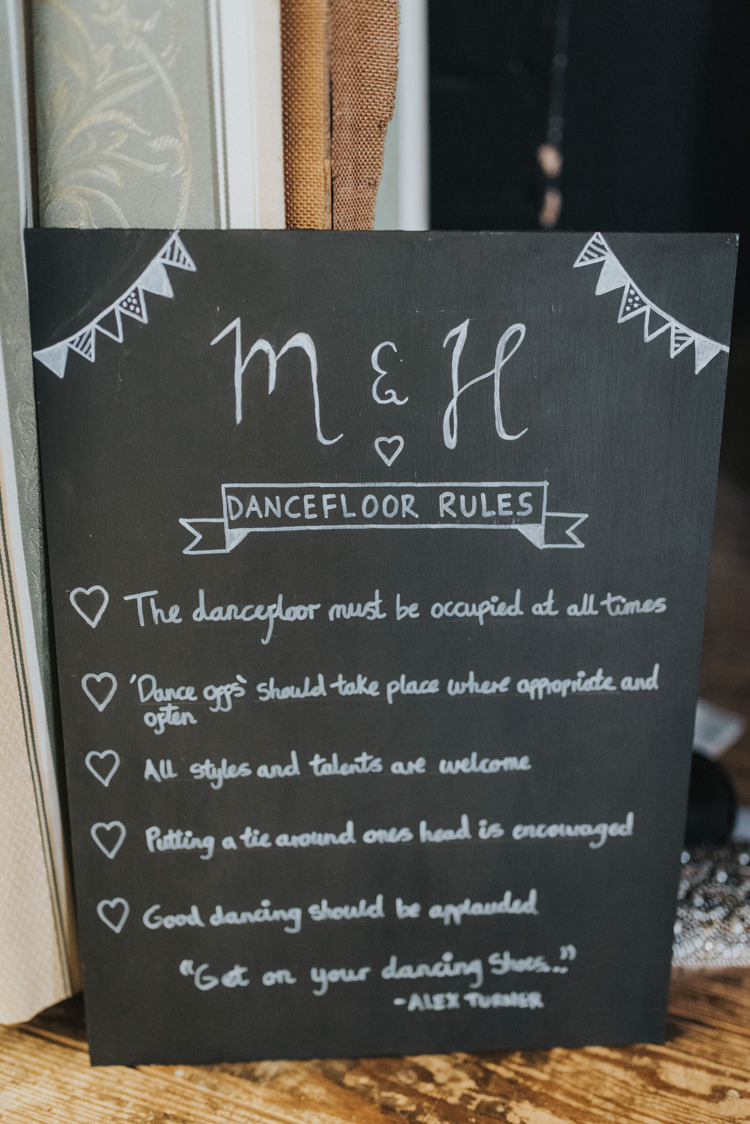 M & H
DANCEFLOOR RULES
The dancefloor must be occupied at all times
'Dance offs' should take place where appropriate and
often
All styles and talents are welcome
Putting a tie around ones head is encouraged
Good dancing should be applauded
"Get on your dancing shoes..."
-ALEX TURNER